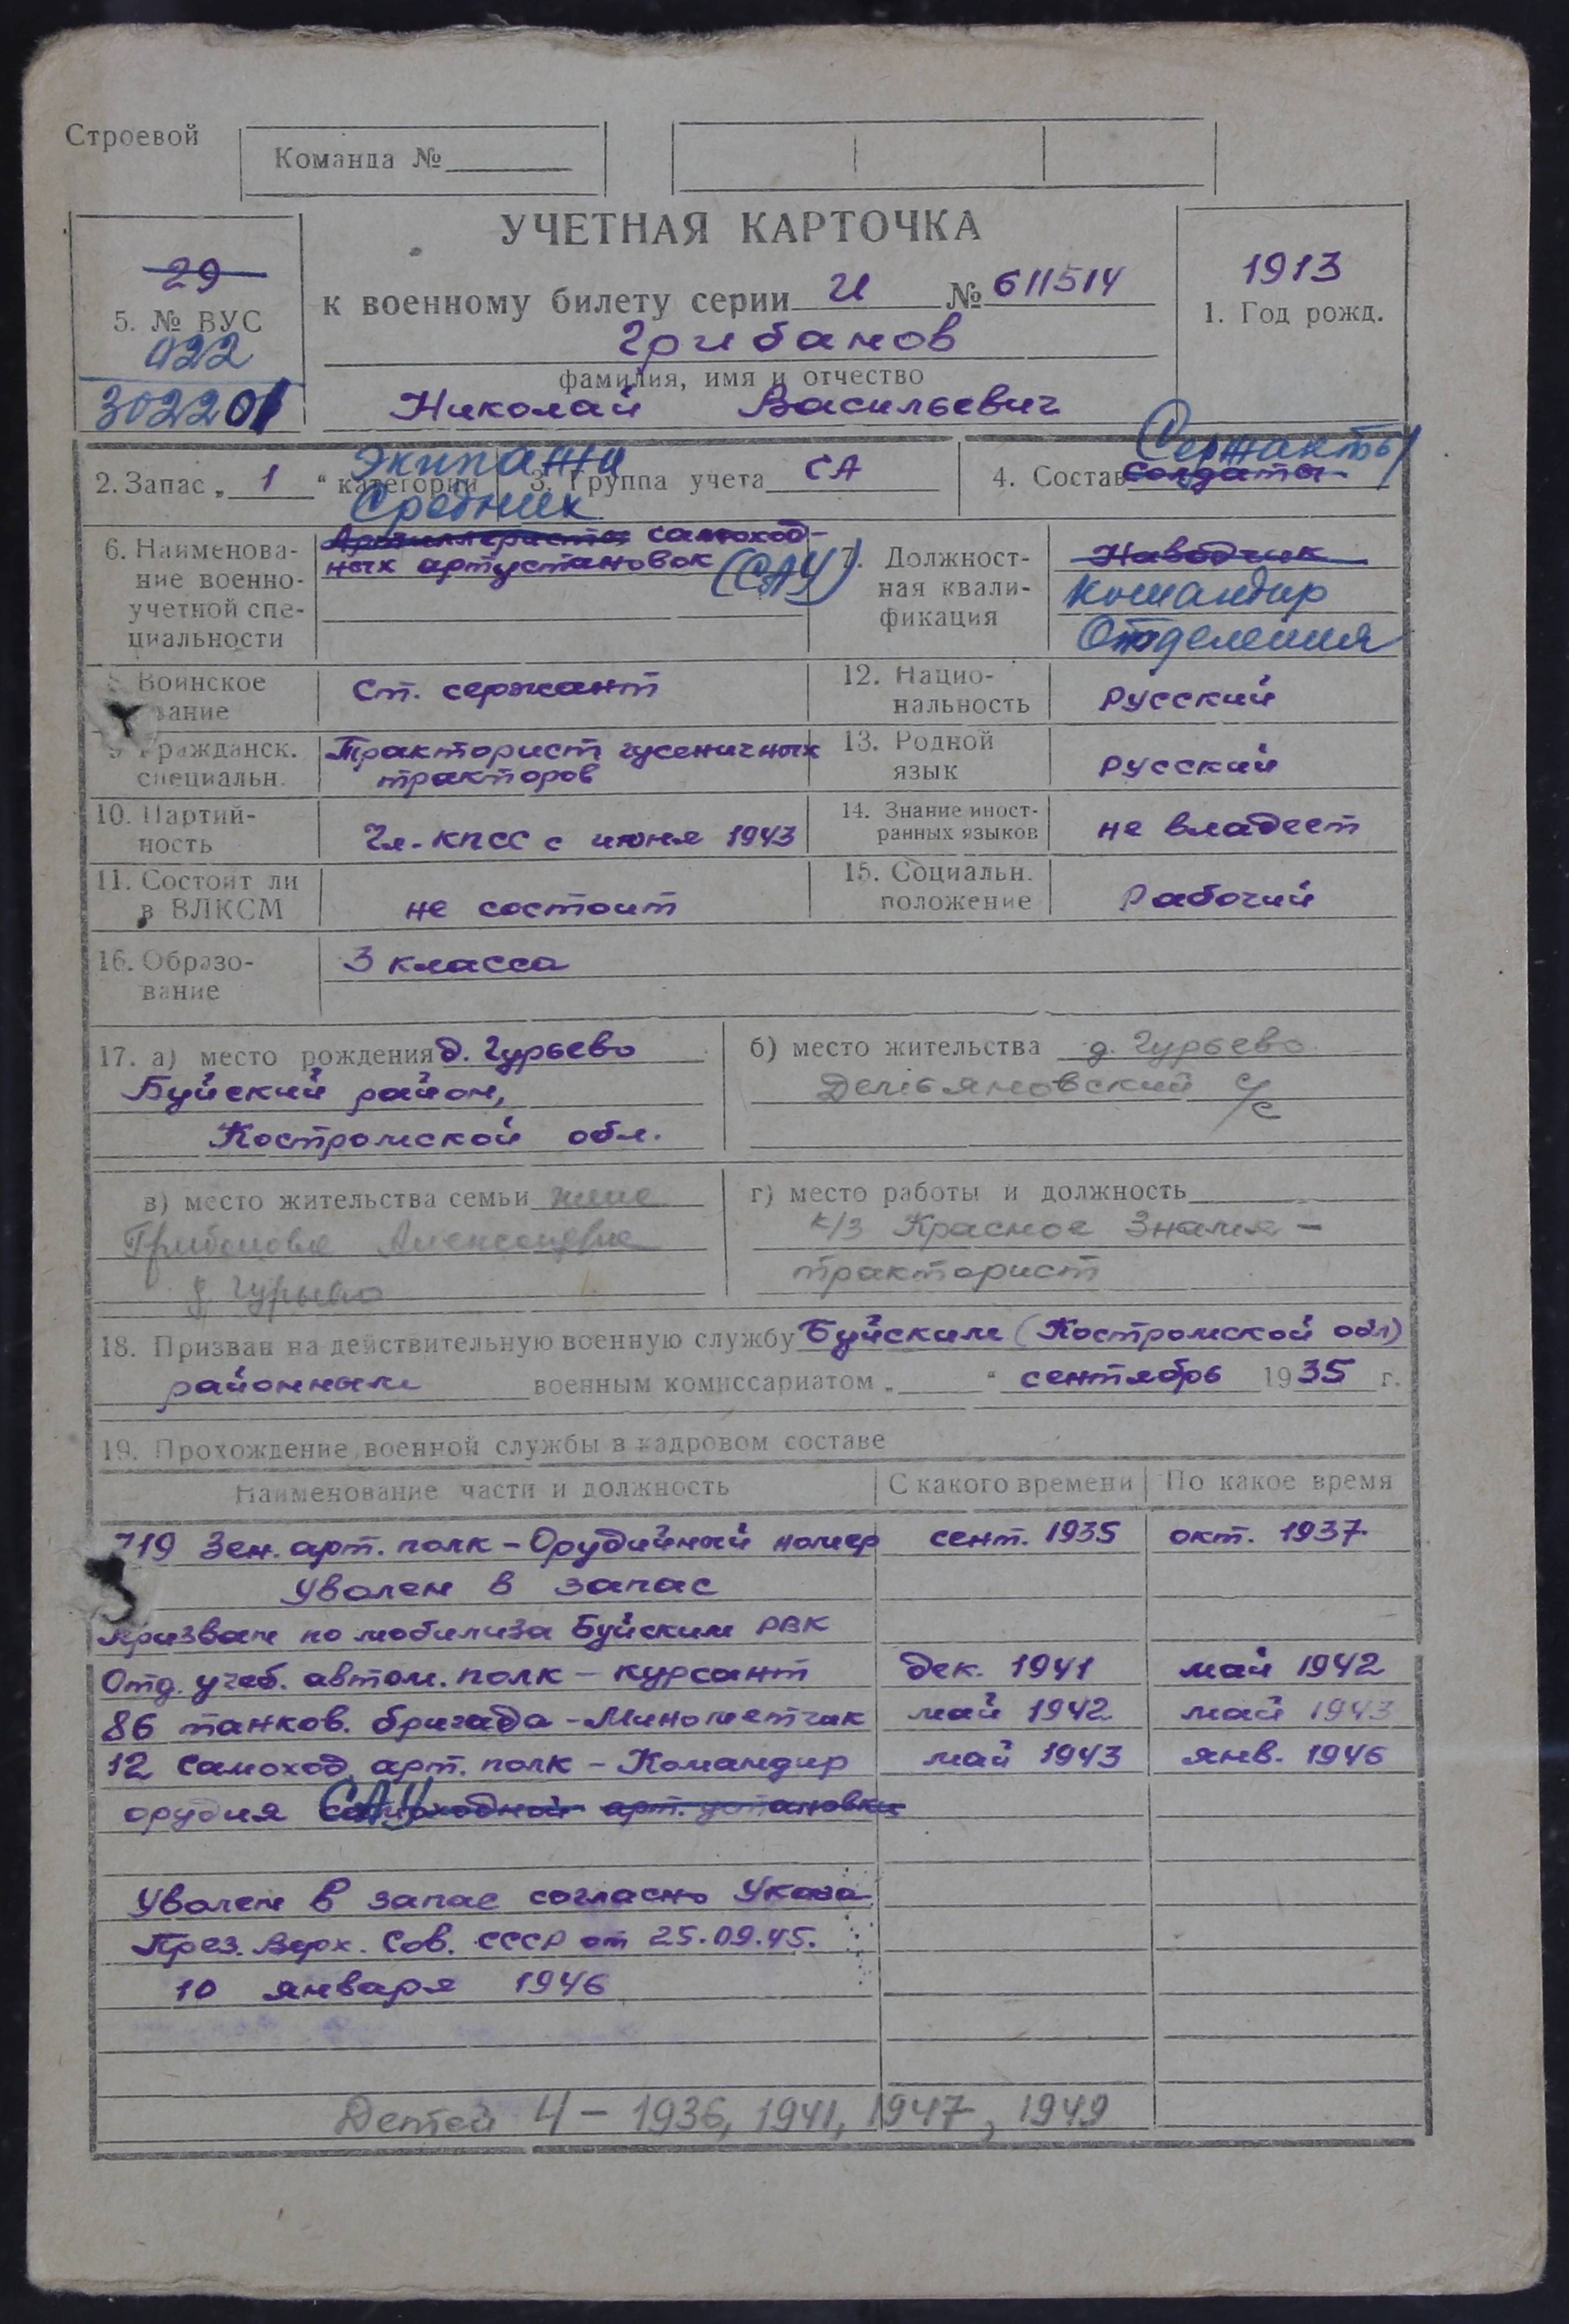 Строевой
Команда №
УЧЕТНАЯ КАРТОЧКА
к военному билету серии И № 611514
29
5. № ВУС
022
302201
1913
1. Год рожд.
Грибанов
фамилия, имя и отчество
Николай Васильевич
2. Запас „ 1 “ категории
3. Группа учета СА
4. Состав солдаты
Сержанты
Экипажи
Средних
6. Наименова-
ние военно-
учетной спе-
циальности
Артиллеристы самоход-
ных артустановок (САУ)
7. Должност-
ная квали-
фикация
Наводчик
командир
Отделения
8. Воинское
звание
Ст. сержант
12. Нацио-
нальность
Русский
9. Гражданск.
специальн.
Тракторист гусеничных
тракторов
13. Родной
язык
Русский
10. Партий-
ность
Чл. КПСС с июня 1943
14. Знание иност-
ранных языков
не владеет
11. Состоит ли
в ВЛКСМ
не состоит
15. Социальн.
положение
Рабочий
16. Образо-
вание
3 класса
17. а) место рождения д. Гурьево
Буйский район,
Костромской обл.
б) место жительства д. Гурьево
Дельяновский с/с
в) место жительства семьи жена
Грибанова
д. Гурьево
г) место работы и должность
к/з Красное Знамя –
тракторист
18. Призван на действительную военную службу Буйским (Костромской обл)
районным военным комиссариатом „ “ сентябрь 1935 г.
19. Прохождение военной службы в кадровом составе
Наименование части и должность С какого времени По какое время
719 Зен. арт. полк – Орудийный номер сент. 1935 окт. 1937
Уволен в запас
Призван по мобилиза Буйским РВК
Отд. учеб. автом. полк – курсант дек. 1941 май 1942
86 танков. бригада – Минометчик май 1942 май 1943
12 Самоход. арт. полк – Командир май 1943 янв. 1946
орудия самоходной арт. установки
САУ
Уволен в запас согласно Указа
През. Верх. Сов. СССР от 25.09.45.
10 января 1946
Детей 4 – 1936, 1941, 1947, 1949